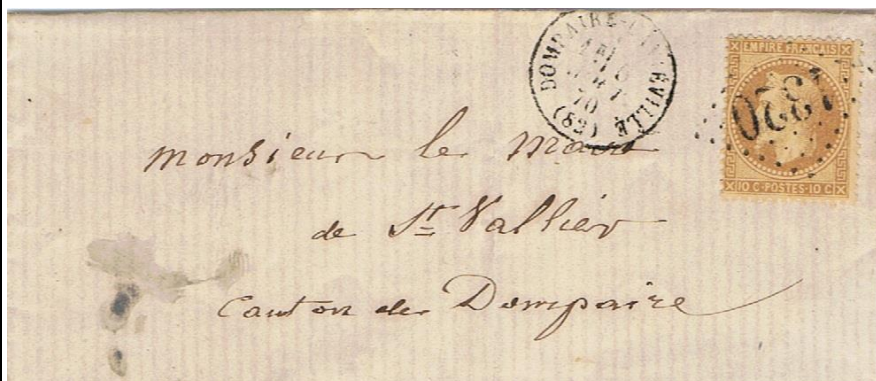 DOMPAIRE-LAVIÉVILLE (88)
70
EMPIRE FRANÇAIS
1320
10 C·POSTES·10 C
Monsieur le Maire
de St Vallier
Canton de Dompaire